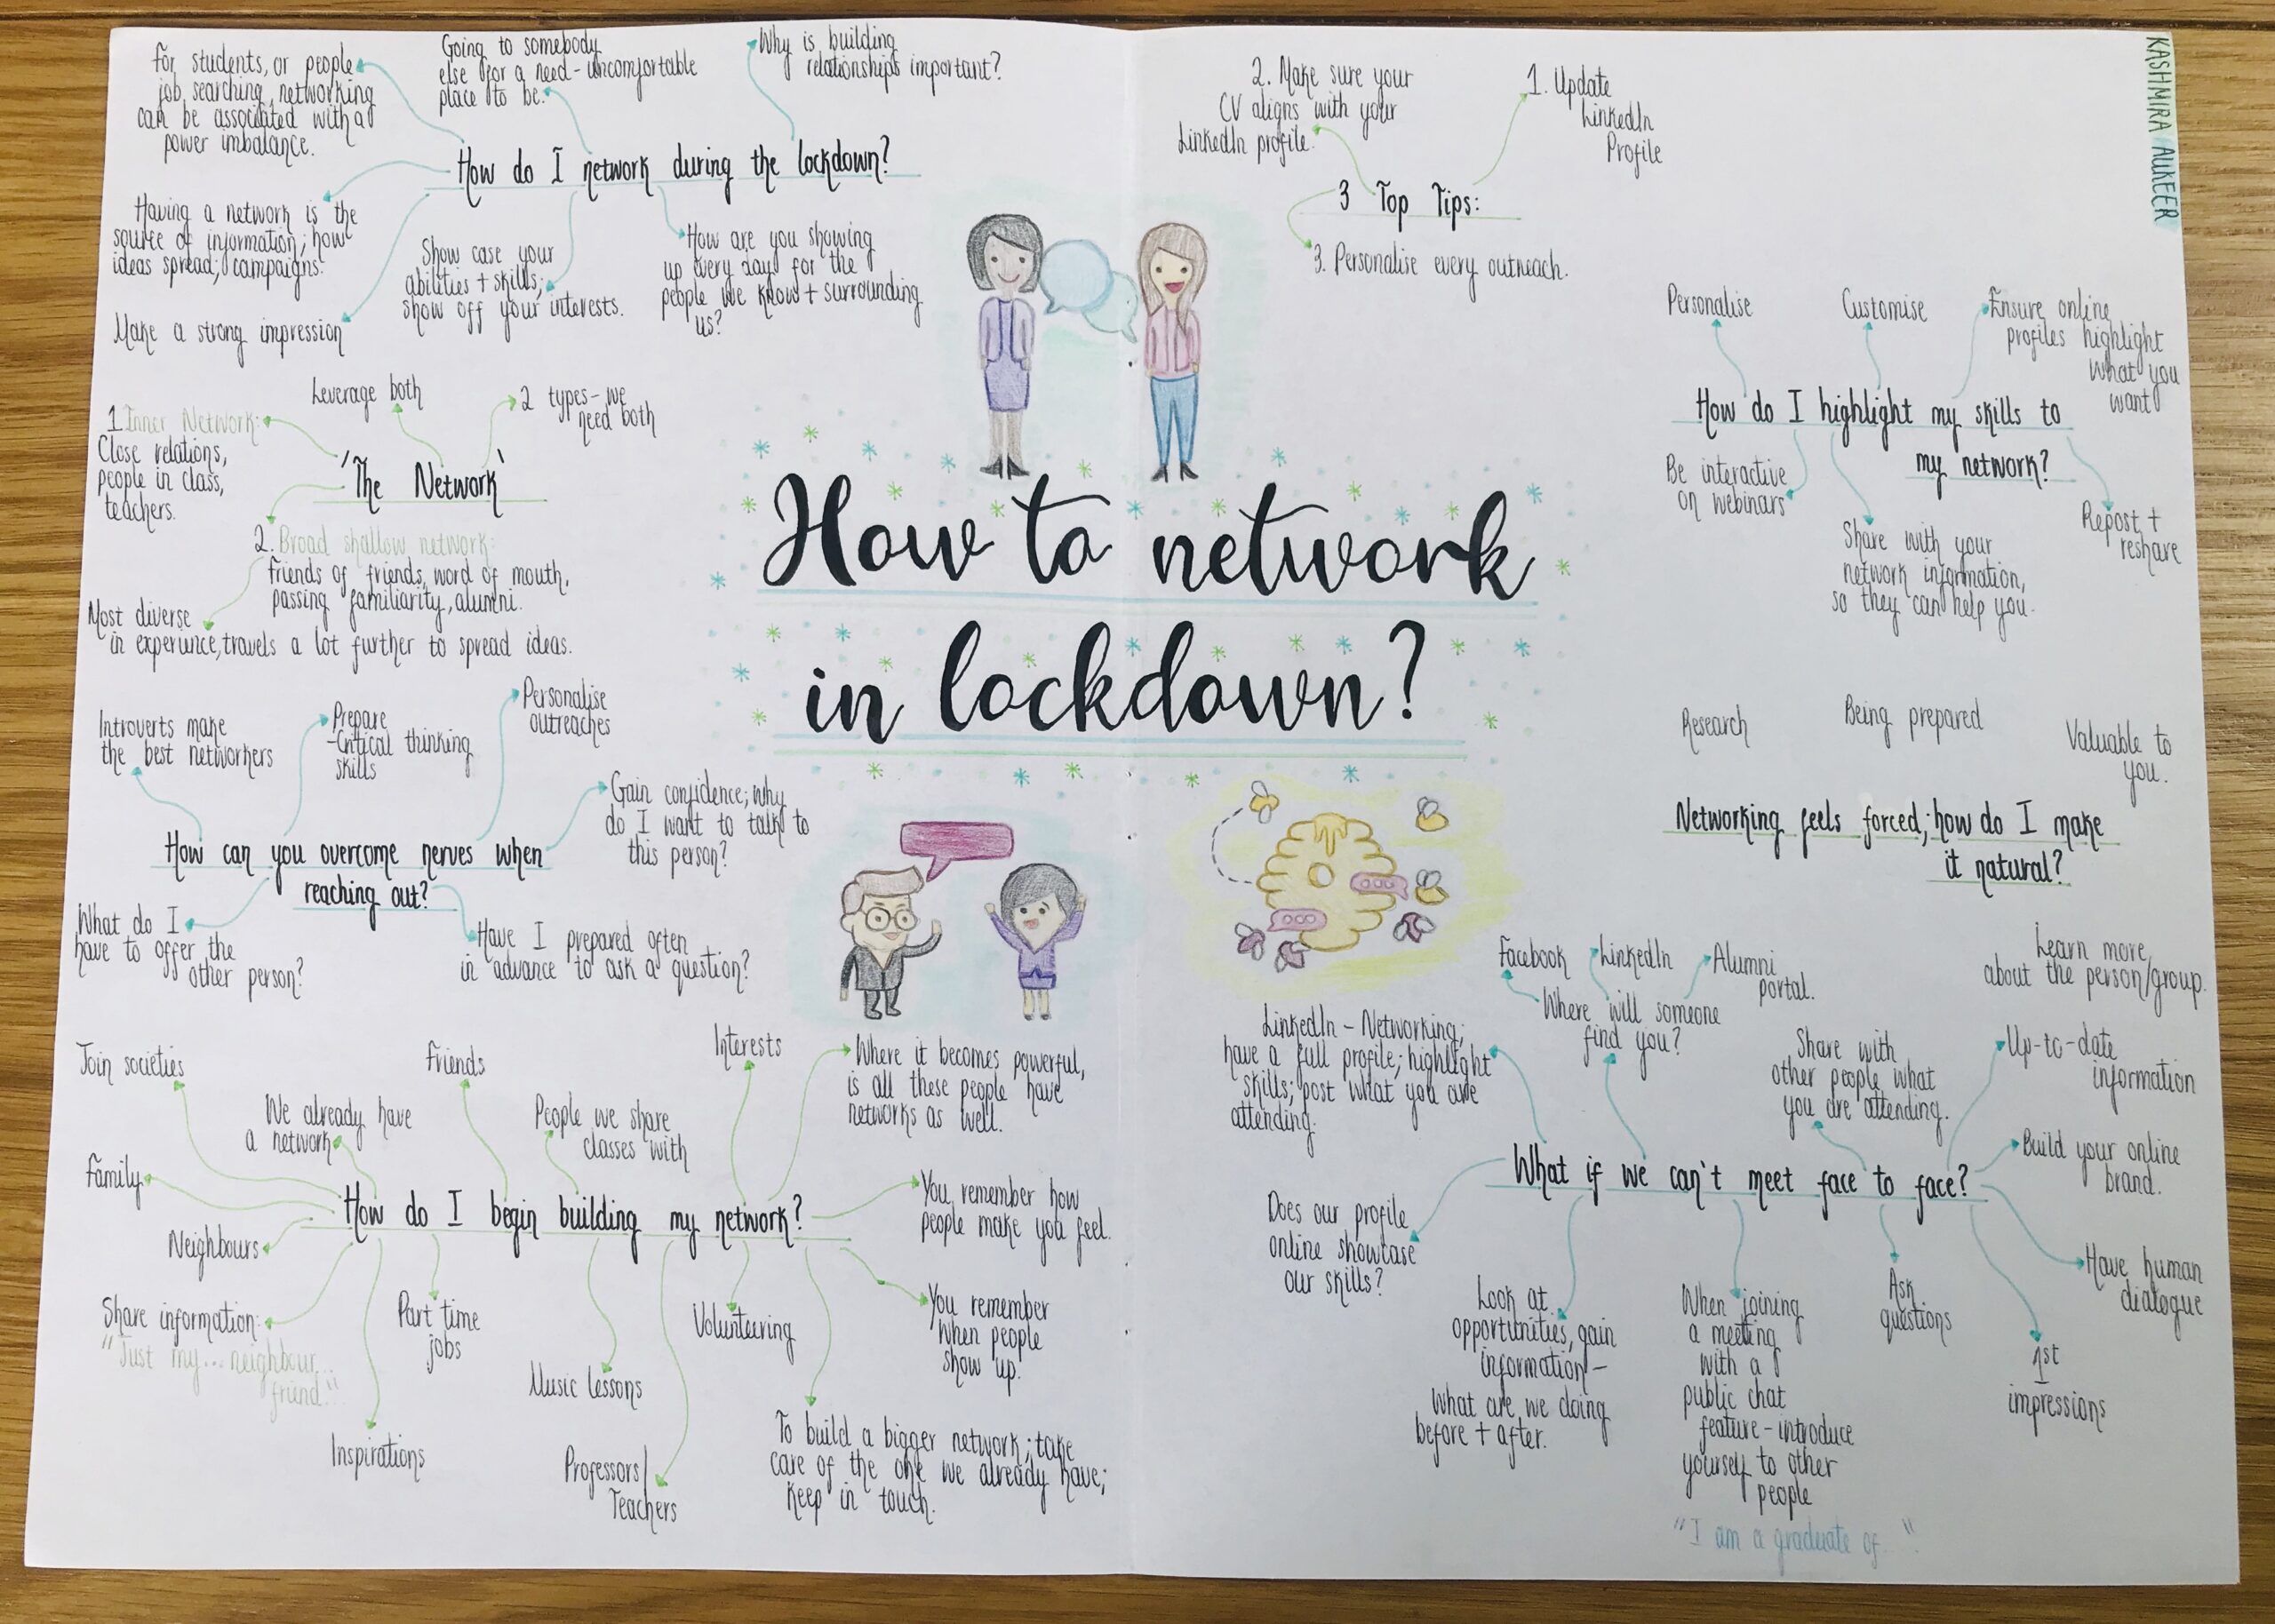 How to network
in lockdown?
KASHMIRA AUKEER
How do I network during the lockdown?
For students, or people
job searching, networking
can be associated with a
power imbalance.
Going to somebody
else for a need - uncomfortable
place to be.
Why is building
relationships important?
Having a network is the
source of information; how
ideas spread; campaigns.
Make a strong impression
Show case your
abilities + skills;
show off your interests.
How are you showing
up every day for the
people we know + surrounding
us?
'The Network'
1. Inner Network:
Close relations,
people in class,
teachers.
Leverage both
2 types - we
need both
2. Broad shallow network:
friends of friends, word of mouth,
passing familiarity, alumni.
Most diverse
in experience, travels a lot further to spread ideas.
How can you overcome nerves when
reaching out?
Introverts make
the best networkers
Prepare
- Critical thinking
skills
Personalise
outreaches
Gain confidence; why
do I want to talk to
this person?
What do I
have to offer the
other person?
Have I prepared often
in advance to ask a question?
How do I begin building my network?
Join societies
We already have
a network
Friends
People we share
classes with
Interests
Where it becomes powerful,
is all these people have
networks as well.
Family
Neighbours
Share information:
"Just my... neighbour...
friend.."
Inspirations
Part time
jobs
Music lessons
Professors/
Teachers
Volunteering
To build a bigger network; take
care of the one we already have;
keep in touch.
You remember how
people make you feel.
You remember
when people
show up.
3 Top Tips:
1. Update
LinkedIn
Profile
2. Make sure your
CV aligns with your
LinkedIn profile.
3. Personalise every outreach.
How do I highlight my skills to
my network?
Personalise
Customise
Ensure online
profiles highlight
what you
want
Be interactive
on webinars
Share with your
network information,
so they can help you.
Repost +
reshare
Networking feels forced; how do I make
it natural?
Research
Being prepared
Valuable to
you.
Learn more
about the person/group.
What if we can't meet face to face?
LinkedIn - Networking;
have a full profile; highlight
skills; post what you are
attending.
Facebook
LinkedIn
Alumni
portal.
Where will someone
find you?
Share with
other people what
you are attending.
Up-to-date
information
Build your online
brand.
Have human
dialogue
Does our profile
online showcase
our skills?
Look at
opportunities, gain
information -
What are we doing
before + after.
When joining
a meeting
with a
public chat
feature - introduce
yourself to other
people
"I am a graduate of..."
Ask
questions
1st
impressions